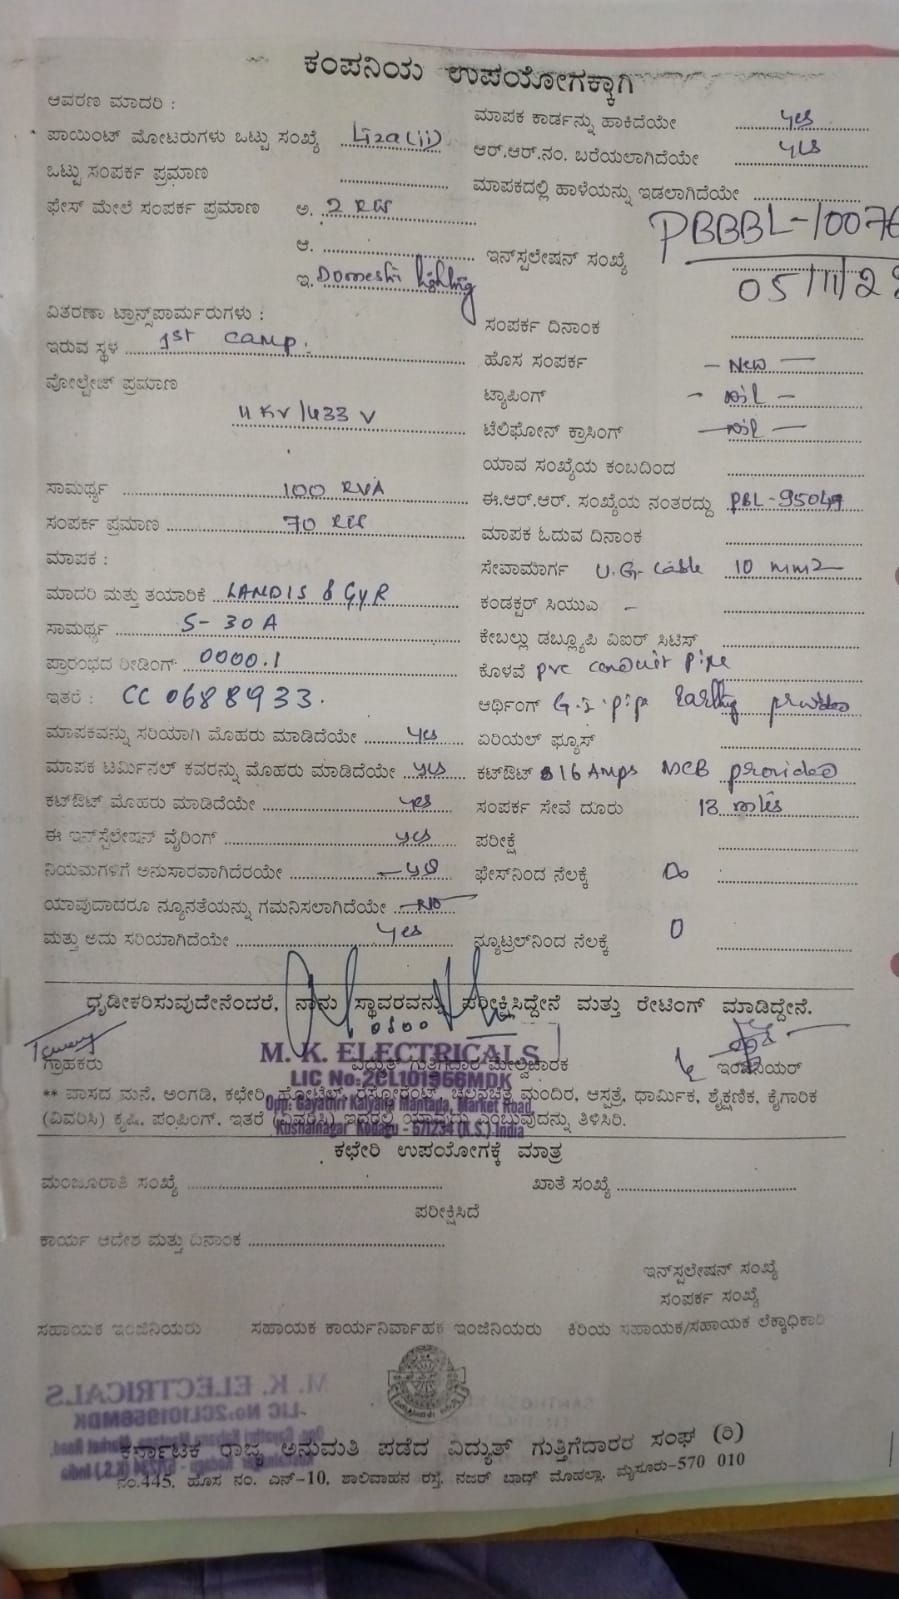 ಕಂಪನಿಯ ಉಪಯೋಗಕ್ಕಾಗಿ
ಆವರಣ ಮಾದರಿ :
ಪಾಯಿಂಟ್ ಮೋಟರುಗಳು ಒಟ್ಟು ಸಂಖ್ಯೆ
ಒಟ್ಟು ಸಂಪರ್ಕ ಪ್ರಮಾಣ
ಫೇಸ್ ಮೇಲೆ ಸಂಪರ್ಕ ಪ್ರಮಾಣ ಅ. 2 KW
ಆ.
ಇ. Domestic lighting
ವಿತರಣಾ ಟ್ರಾನ್ಸ್‌ಪಾರ್ಮರುಗಳು :
ಇರುವ ಸ್ಥಳ 1st camp.
ವೋಲ್ಟೇಜ್ ಪ್ರಮಾಣ
11 KV/433 V
ಸಾಮರ್ಥ್ಯ 100 KVA
ಸಂಪರ್ಕ ಪ್ರಮಾಣ 70 KW
ಮಾಪಕ :
ಮಾದರಿ ಮತ್ತು ತಯಾರಿಕೆ LANDIS & GYR
ಸಾಮರ್ಥ್ಯ 5-30A
ಪ್ರಾರಂಭದ ರೀಡಿಂಗ್ 0000.1
ಇತರೆ : CC 0688933.
ಮಾಪಕವನ್ನು ಸರಿಯಾಗಿ ಮೊಹರು ಮಾಡಿದೆಯೇ yes
ಮಾಪಕ ಟರ್ಮಿನಲ್ ಕವರನ್ನು ಮೊಹರು ಮಾಡಿದೆಯೇ yes
ಕಟ್‌ಔಟ್ ಮೊಹರು ಮಾಡಿದೆಯೇ yes
ಈ ಇನ್‌ಸ್ಟಲೇಷನ್ ವೈರಿಂಗ್ yes
ನಿಯಮಗಳಿಗೆ ಅನುಸಾರವಾಗಿದೆರಯೇ yes
ಯಾವುದಾದರೂ ನ್ಯೂನತೆಯನ್ನು ಗಮನಿಸಲಾಗಿದೆಯೇ NO
ಮತ್ತು ಅದು ಸರಿಯಾಗಿದೆಯೇ Yes
ಮಾಪಕ ಕಾರ್ಡನ್ನು ಹಾಕಿದೆಯೇ yes
ಆರ್.ಆರ್.ನಂ. ಬರೆಯಲಾಗಿದೆಯೇ yes
ಮಾಪಕದಲ್ಲಿ ಹಾಳೆಯನ್ನು ಇಡಲಾಗಿದೆಯೇ
PBBBL-10076
ಇನ್‌ಸ್ಟಲೇಷನ್ ಸಂಖ್ಯೆ
05/11/2
ಸಂಪರ್ಕ ದಿನಾಂಕ
ಹೊಸ ಸಂಪರ್ಕ - New -
ಟ್ಯಾಪಿಂಗ್ - nil -
ಟೆಲಿಫೋನ್ ಕ್ರಾಸಿಂಗ್ - nil -
ಯಾವ ಸಂಖ್ಯೆಯ ಕಂಬದಿಂದ
ಈ.ಆರ್.ಆರ್. ಸಂಖ್ಯೆಯ ನಂತರದ್ದು PBL-95049
ಮಾಪಕ ಓದುವ ದಿನಾಂಕ
ಸೇವಾಮಾರ್ಗ U.G. Cable 10 mm2
ಕಂಡಕ್ಟರ್ ಸಿಯುಎ -
ಕೇಬಲ್ಲು ಡಬ್ಲ್ಯೂಪಿ ವಿಐರ್ ಸಿಟಿಸ್
ಕೊಳವೆ pvc conduit pipe
ಆರ್ಥಿಂಗ್ G.I. pipe Earthing provided
ಏರಿಯಲ್ ಫ್ಯೂಸ್
ಕಟ್‌ಔಟ್ 16 Amps MCB provided
ಸಂಪರ್ಕ ಸೇವೆ ದೂರು
ಪರೀಕ್ಷೆ
ಫೇಸ್‌ನಿಂದ ನೆಲಕ್ಕೆ ∞
ನ್ಯೂಟ್ರಲ್‌ನಿಂದ ನೆಲಕ್ಕೆ 0
ಧೃಡೀಕರಿಸುವುದೇನೆಂದರೆ, ನಾನು ಸ್ಥಾವರವನ್ನು ಪರೀಕ್ಷಿಸಿದ್ದೇನೆ ಮತ್ತು ರೇಟಿಂಗ್ ಮಾಡಿದ್ದೇನೆ.
ಗ್ರಾಹಕರು ವಿದ್ಯುತ್ ಗುತ್ತಿಗೆದಾರ ಮೇಲ್ವಿಚಾರಕ ಇಂಜಿನಿಯರ್
M. K. ELECTRICALS
LIC No:2CL101956MDK
Opp: Gayathri Kalyana Mantapa, Market Road
Kushalnagar Kodagu - 571234 (K.S.) India
** ವಾಸದ ಮನೆ, ಅಂಗಡಿ, ಕಛೇರಿ, ಹೋಟೆಲ್, ರೆಸ್ಟೋರೆಂಟ್, ಚಲನಚಿತ್ರ ಮಂದಿರ, ಆಸ್ಪತ್ರೆ, ಧಾರ್ಮಿಕ, ಶೈಕ್ಷಣಿಕ, ಕೈಗಾರಿಕೆ
(ವಿವರಿಸಿ) ಕೃಷಿ, ಪಂಪಿಂಗ್. ಇತರೆ (ವಿವರಿಸಿ) ಇದರಲ್ಲಿ ಯಾವುದು ಎಂಬುವುದನ್ನು ತಿಳಿಸಿರಿ.
ಕಛೇರಿ ಉಪಯೋಗಕ್ಕೆ ಮಾತ್ರ
ಮಂಜೂರಾತಿ ಸಂಖ್ಯೆ ಖಾತೆ ಸಂಖ್ಯೆ
ಪರೀಕ್ಷಿಸಿದೆ
ಕಾರ್ಯ ಆದೇಶ ಮತ್ತು ದಿನಾಂಕ
ಇನ್‌ಸ್ಟಲೇಷನ್ ಸಂಖ್ಯೆ
ಸಂಪರ್ಕ ಸಂಖ್ಯೆ
ಸಹಾಯಕ ಇಂಜಿನಿಯರು ಸಹಾಯಕ ಕಾರ್ಯನಿರ್ವಾಹಕ ಇಂಜಿನಿಯರು ಕಿರಿಯ ಸಹಾಯಕ/ಸಹಾಯಕ ಲೆಕ್ಕಾಧಿಕಾರಿ
M. K. ELECTRICALS
LIC No:2CL101956MDK
ಕರ್ನಾಟಕ ರಾಜ್ಯ ಅನುಮತಿ ಪಡೆದ ವಿದ್ಯುತ್ ಗುತ್ತಿಗೆದಾರರ ಸಂಘ (ರಿ)
ನಂ.445, ಹೊಸ ನಂ. ಎನ್-10, ಶಾಲಿವಾಹನ ರಸ್ತೆ, ನಜರ್ ಬಾದ್ ಮೊಹಲ್ಲಾ, ಮೈಸೂರು-570 010